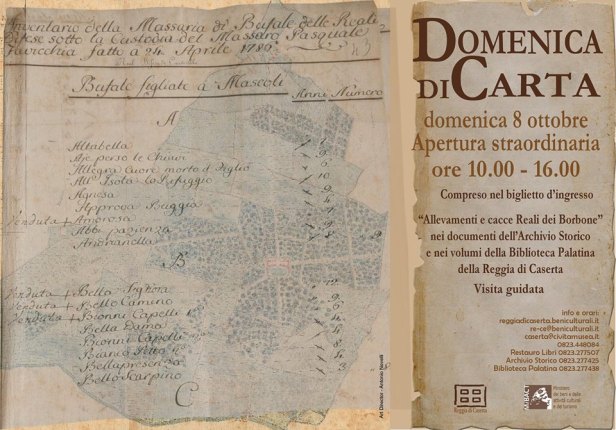 Inventario della Massaria di Bufale delle Reali
Difese sotto la Custodia del Massaro Pasquale
fatto à 24 Aprile 1780
Bufale figliate à Mascoli Anni Numero
A
Altabella
Allegra Cuore morto il figlio
All' Isola lo Rifuggio
Agnesa
Approva Buggia
Venduta + Amorosa
Abbi pazienza
Andrianella
B
Venduta + Bella Figliora
Venduta + Bello Camino
Venduta + Bionni Capelli
Bella Dama
Bionni Capelli
Bianco Petto
Bellapresenza
Bello Scarpino
C
Art Director : Antonio Novelli
DOMENICA
DI CARTA
domenica 8 ottobre
Apertura straordinaria
ore 10.00 - 16.00
Compreso nel biglietto d’ingresso
“Allevamenti e cacce Reali dei Borbone”
nei documenti dell’Archivio Storico
e nei volumi della Biblioteca Palatina
della Reggia di Caserta
Visita guidata
info e orari:
reggiadicaserta.beniculturali.it
re-ce@beniculturali.it
caserta@civitamusea.it
0823.448084
Restauro Libri 0823.277507
Archivio Storico 0823.277425
Biblioteca Palatina 0823.277438
Reggia di Caserta
MiBACT
Ministero
dei beni e delle
attività culturali
e del turismo